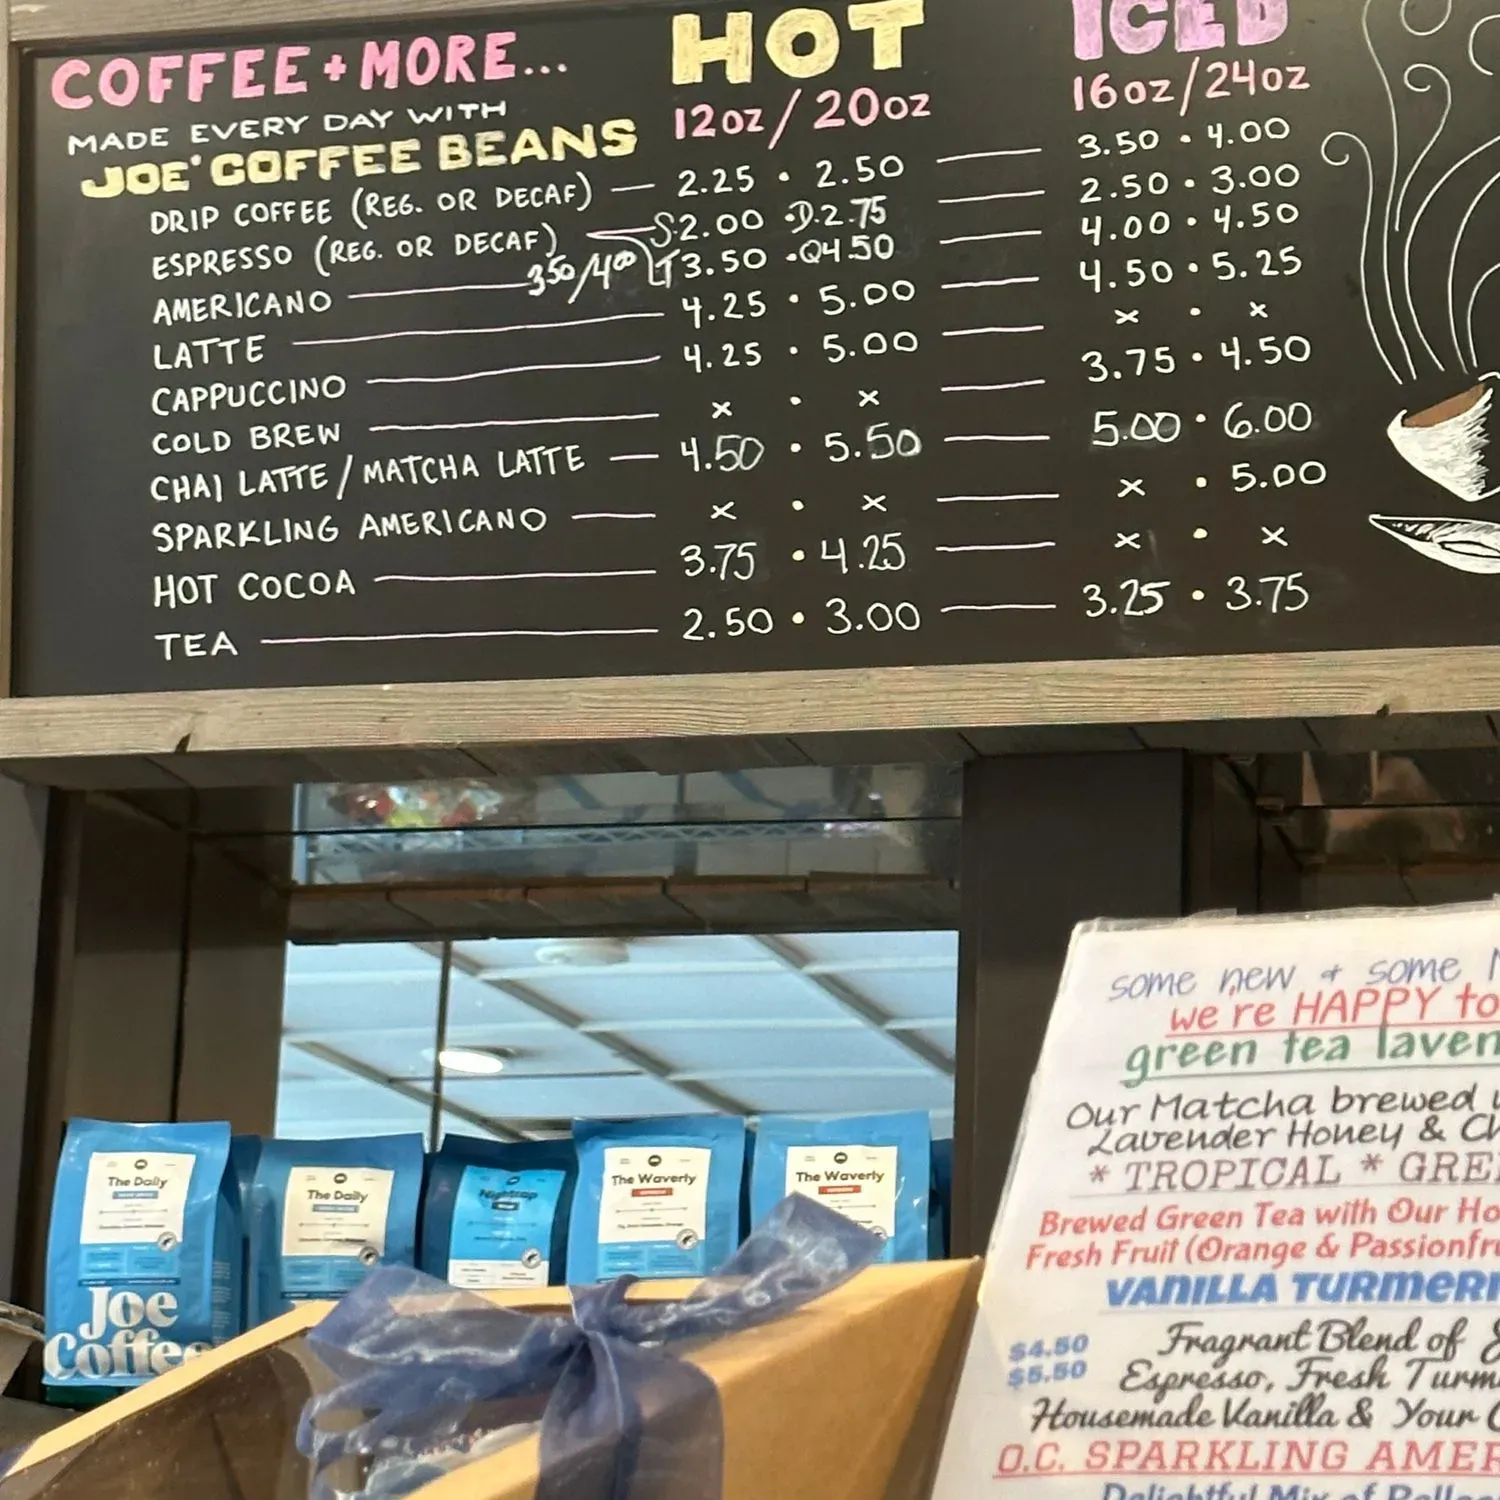 COFFEE + MORE...
MADE EVERY DAY WITH
JOE' COFFEE BEANS
HOT
12oz / 20oz
ICED
16oz / 24oz
DRIP COFFEE (REG. OR DECAF) — 2.25 • 2.50 — 3.50 • 4.00
ESPRESSO (REG. OR DECAF) — S.2.00 • D.2.75 — 2.50 • 3.00
T 3.50 • Q4.50 — 4.00 • 4.50
AMERICANO — 3.50/4.00
LATTE — 4.25 • 5.00 — 4.50 • 5.25
CAPPUCCINO — 4.25 • 5.00 — x • x
COLD BREW — x • x — 3.75 • 4.50
CHAI LATTE / MATCHA LATTE — 4.50 • 5.50 — 5.00 • 6.00
SPARKLING AMERICANO — x • x — x • 5.00
HOT COCOA — 3.75 • 4.25 — x • x
TEA — 2.50 • 3.00 — 3.25 • 3.75
The Daily
The Daily
Nightcap
The Waverly
The Waverly
Joe
Coffee
some new + some
we're HAPPY to
green tea laven
Our Matcha brewed
Lavender Honey & Ch
* TROPICAL * GRE
Brewed Green Tea with Our Ho
Fresh Fruit (Orange & Passionfru
VANILLA TURMERI
$4.50
$5.50
Fragrant Blend of
Espresso, Fresh Turm
Housemade Vanilla & Your
O.C. SPARKLING AMER
Delightful Mix of